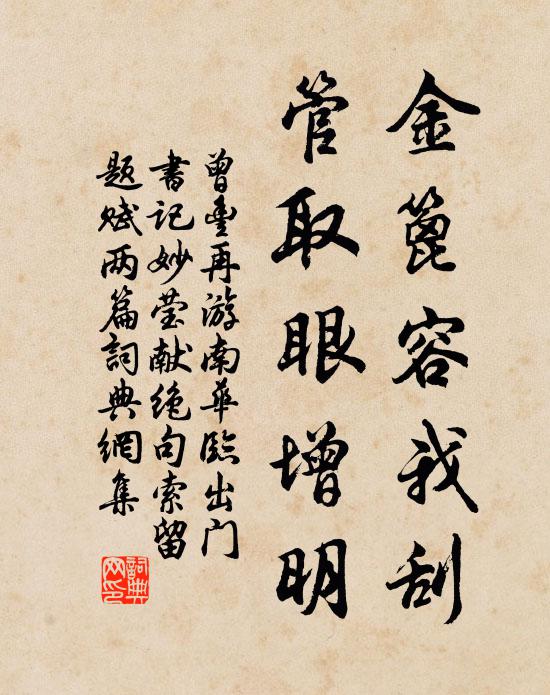 金篦容我刮
管取眼增明
曾豊再游南華臨出门
書记妙莹献绝句索留
题赋两篇詞典網集
詞典
网印